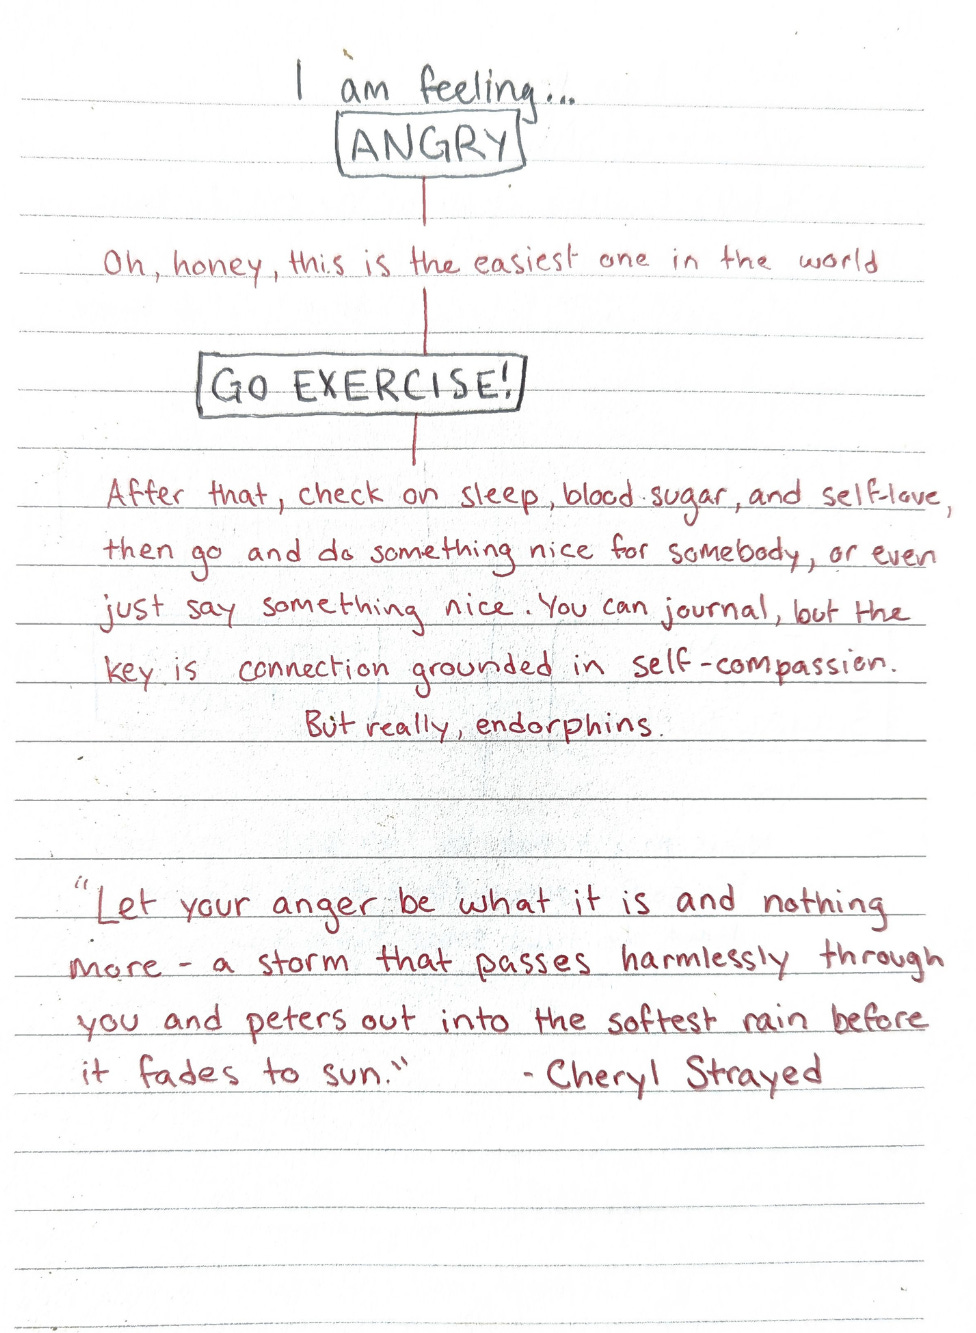 I am feeling...
ANGRY
Oh, honey, this is the easiest one in the world
GO EXERCISE!
After that, check on sleep, blood sugar, and self-love,
then go and do something nice for somebody, or even
just say something nice. You can journal, but the
key is connection grounded in self-compassion.
But really, endorphins.
"Let your anger be what it is and nothing
more - a storm that passes harmlessly through
you and peters out into the softest rain before
it fades to sun." - Cheryl Strayed